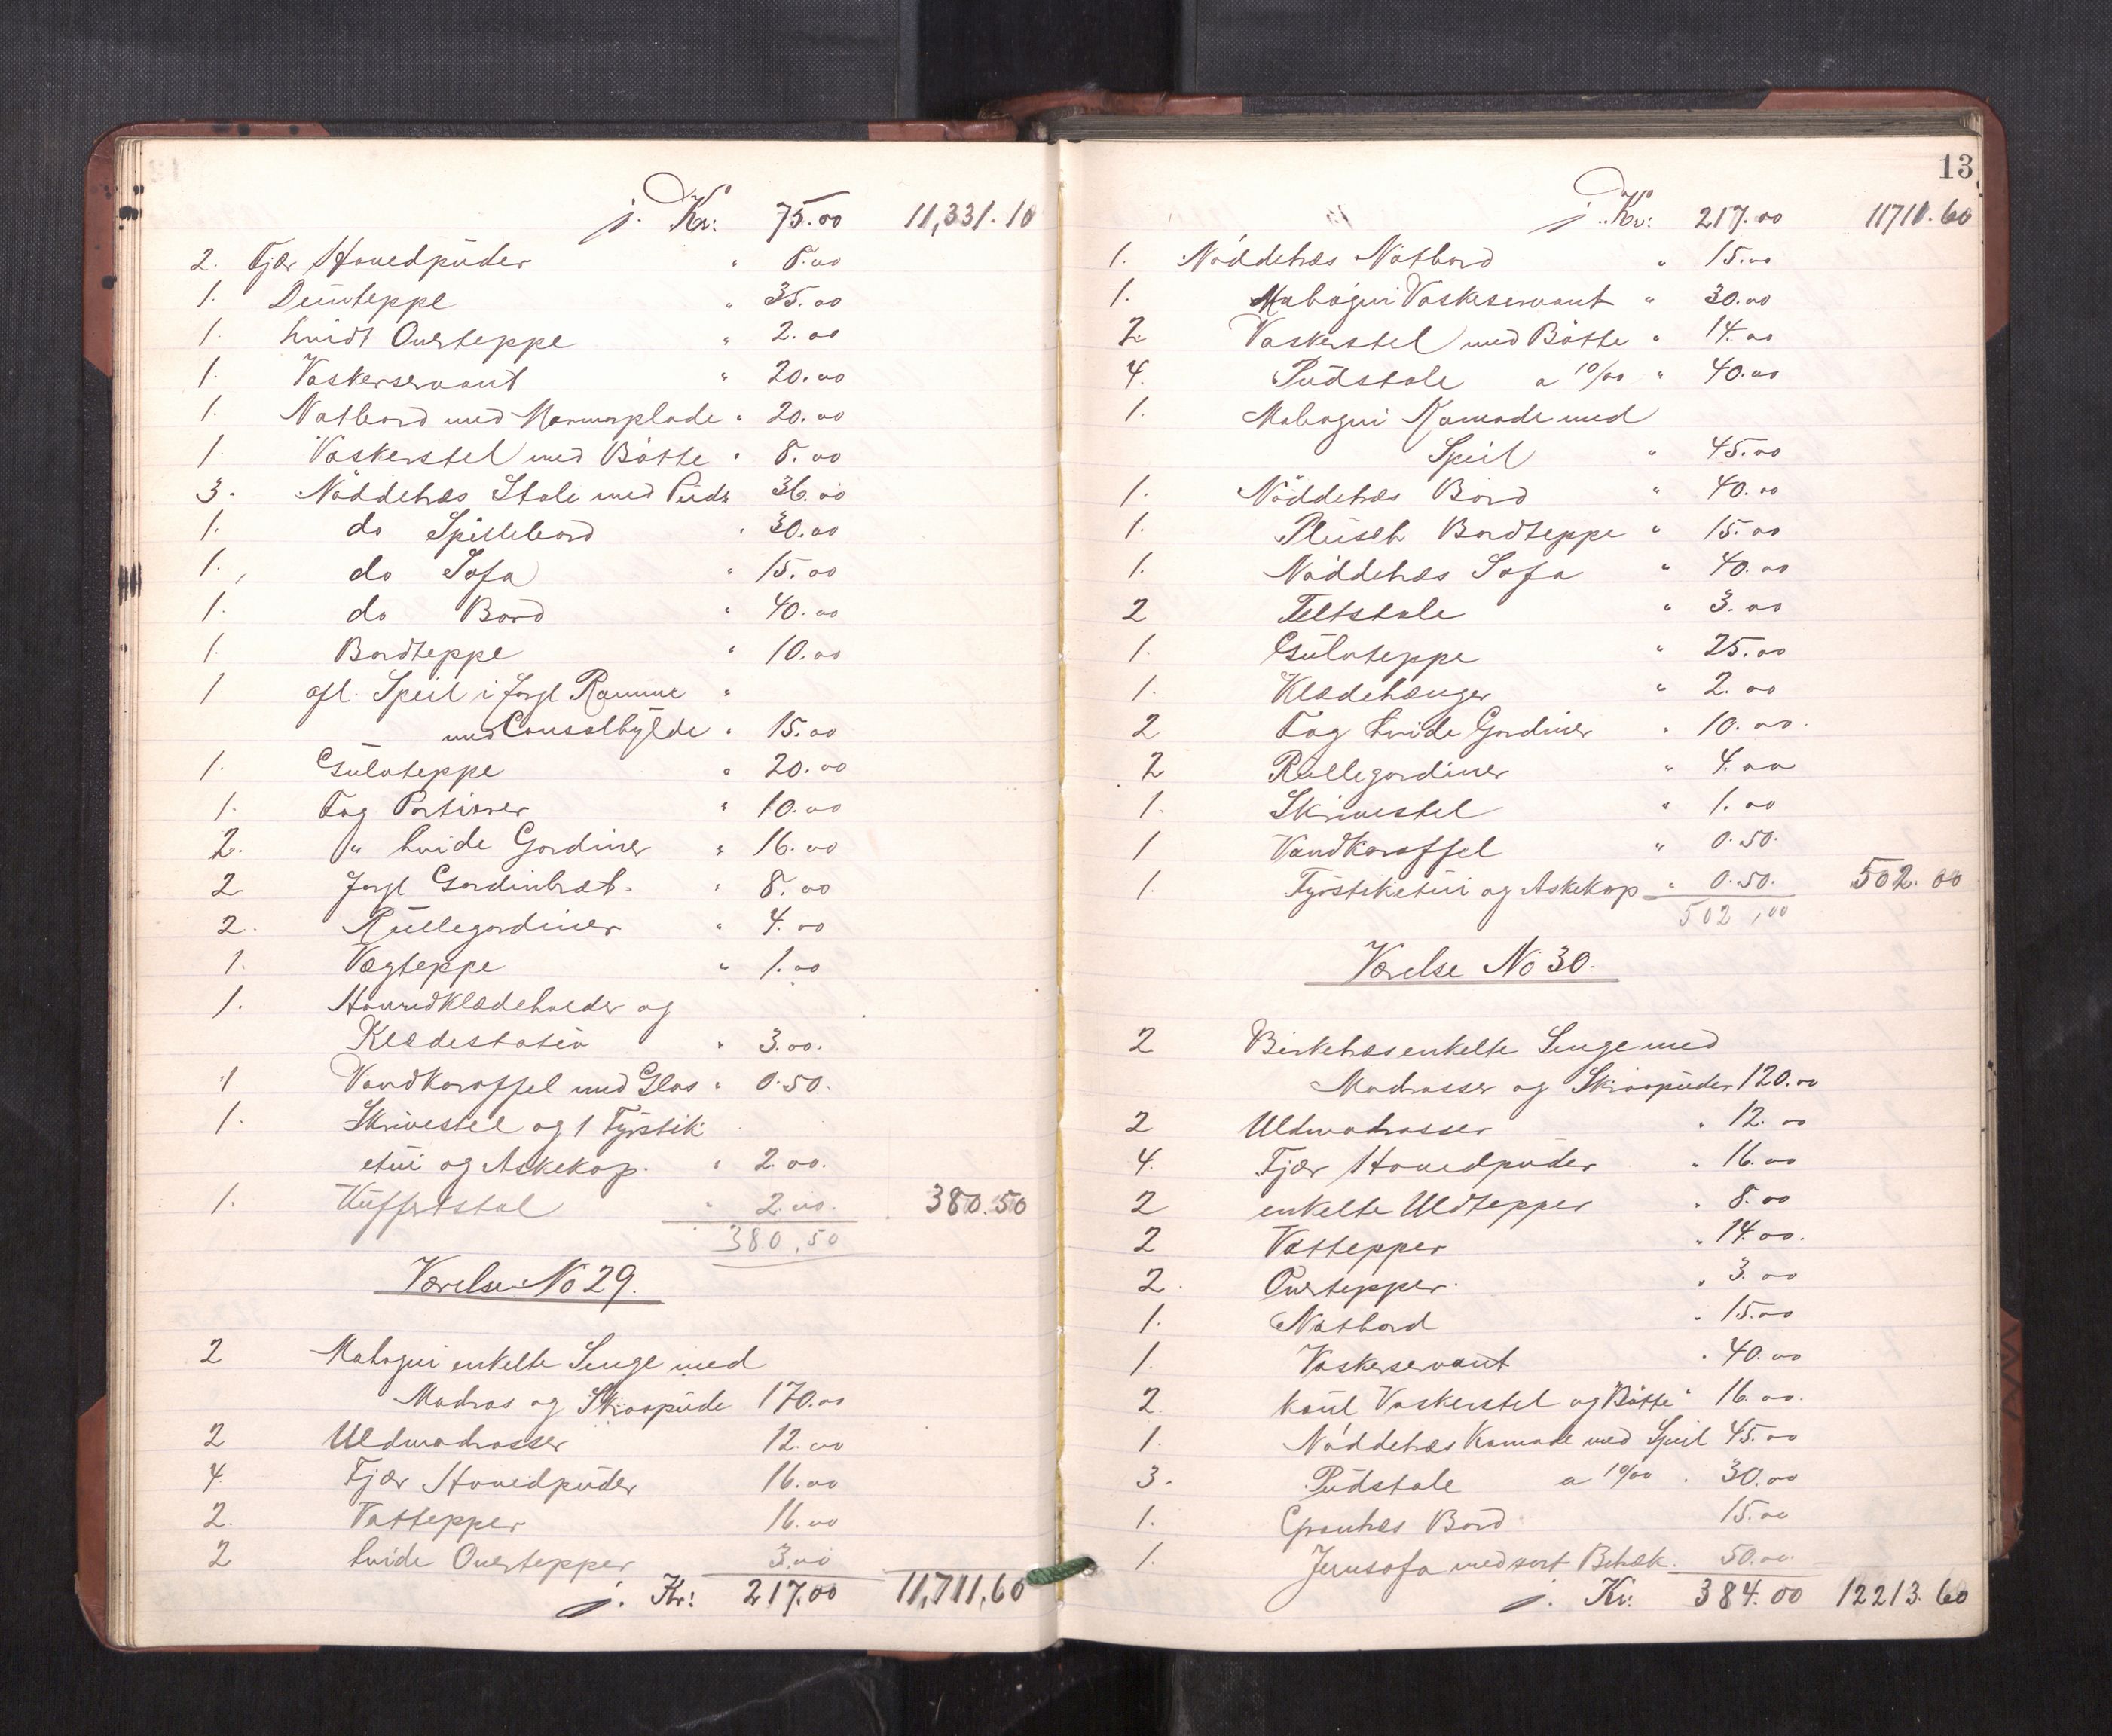 j. Kr: 75.00 11,331.10
2. Fjær Hovedpuder " 8.00
1. Dunteppe " 35.00
1. hvidt Overteppe " 2.00
1. Vaskerservant " 20.00
1. Natbord med Marmorplade " 20.00
1 Vaskerstel med Bøtte " 8.00
3. Nøddetræs Stole med Puder 36.00
1. do Spillebord " 30.00
1. do Sofa " 15.00
1. do Bord " 40.00
1. Bordteppe " 10.00
1 gl. Speil i forgl Ramme "
med Consolhylde " 15.00
1. Gulvteppe " 20.00
1. Fag Portierer " 10.00
2. " hvide Gardiner " 16.00
2 forgl Gardinbræt. " 8.00
2. Rullegardiner " 4.00
1. Vægteppe " 1.00
1. Haandklædeholder og
Klædestativ " 3.00.
1 Vandkaraffel med Glas " 0.50.
1. Skrivestel og 1 Fyrstik
etui og Askekop. " 2.00.
1. Kuffertstol " 2.00. 380.50
380,50
Værelse No 29.
2 Mahogni enkelte Senge med
Madras og Skraapude 170.00
2 Uldmadrasser 12.00
4 Fjær Hovedpuder 16.00
2. Vattepper 16.00
2 hvide Overtepper 3.00
j. Kr: 217.00 11,711.60
13
j. Kr: 217.00 11711.60
1. Nøddetræs Natbord " 15.00
1. Mahogni Vaskeservant " 30.00
2 Vaskerstel med Bøtte " 14.00
4. Pudstole a 10/00 " 40.00
1. Mahogni Komode med
Speil " 45.00
1. Nøddetræs Bord " 40.00
1. Plusch Bordteppe " 15.00
1. Nøddetræs Sofa " 40.00
2 Feltstole " 3.00
1. Gulvteppe " 25.00
1. Klædehænger " 2.00
2 Fag hvide Gardiner " 10.00.
2 Rullegardiner " 4.00
1. Skrivestel " 1.00
1 Vandkaraffel " 0.50.
1. Fyrstiketui og Askekop " 0.50. 502.00
502,00
Værelse No 30.
2 Birketræs enkelte Senge med
Madrasser og Skraapuder 120.00
2 Uldmadrasser " 12.00
4. Fjær Hovedpuder " 16.00
2 enkelte Uldtepper " 8.00
2 Vattepper " 14.00.
2. Overtepper. " 3.00
1. Natbord " 15.00
1. Vaskerservant " 40.00
2. Vaskerstel og Bøtte " 16.00.
1. Nøddetræs Komode med Speil 45.00
3. Pudstole a 10/00 " 30.00
1. Grantræs Bord 15.00
1. Jernsofa med sort Betræk. 50.00.
j. Kr: 384.00 12213.60